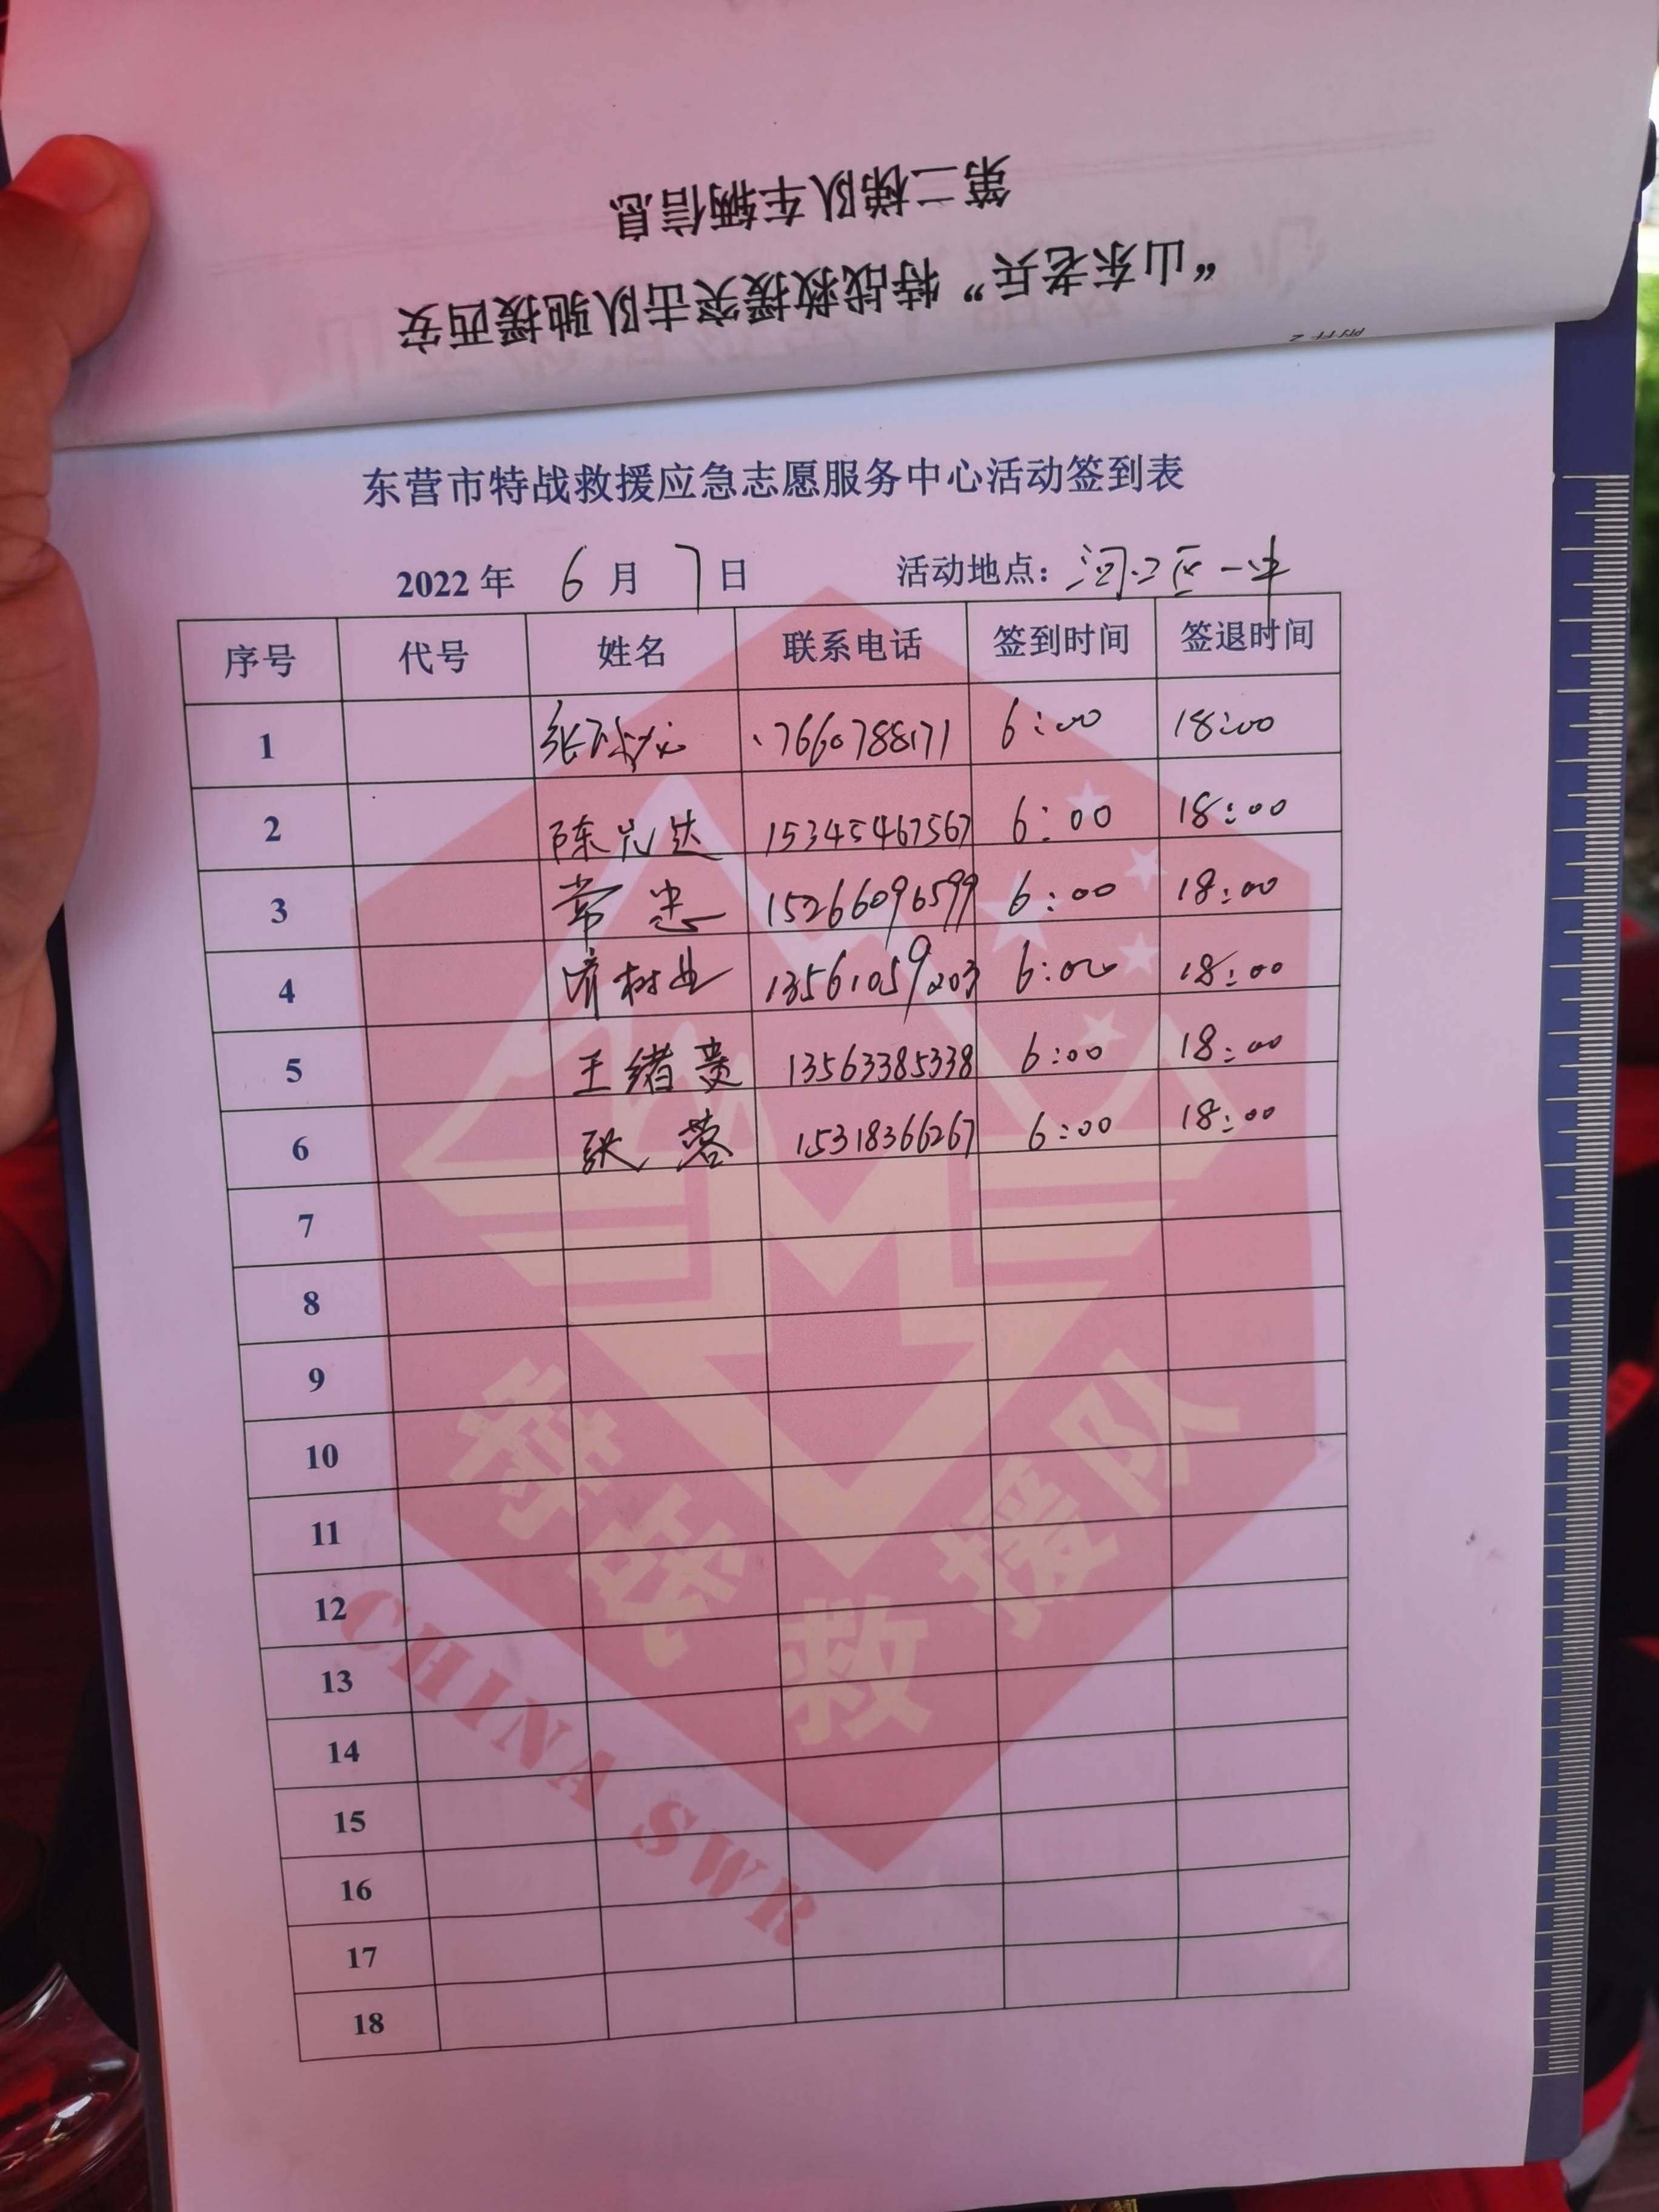 第二梯队车辆信息
“山东老兵”特战救援突击队驰援西安
附件 2
东营市特战救援应急志愿服务中心活动签到表
2022 年 6 月 7 日 活动地点：河口区一中
序号 代号 姓名 联系电话 签到时间 签退时间
1 张 17660788171 6:00 18:00
2 陈兴达 15345467567 6:00 18:00
3 常忠 15266096599 6:00 18:00
4 树业 13561059203 6:00 18:00
5 王绪贵 13563385338 6:00 18:00
6 张蓉 15318366267 6:00 18:00
7
8
9
10
11
12
13
14
15
16
17
18
特战救援队
CHINA SWR